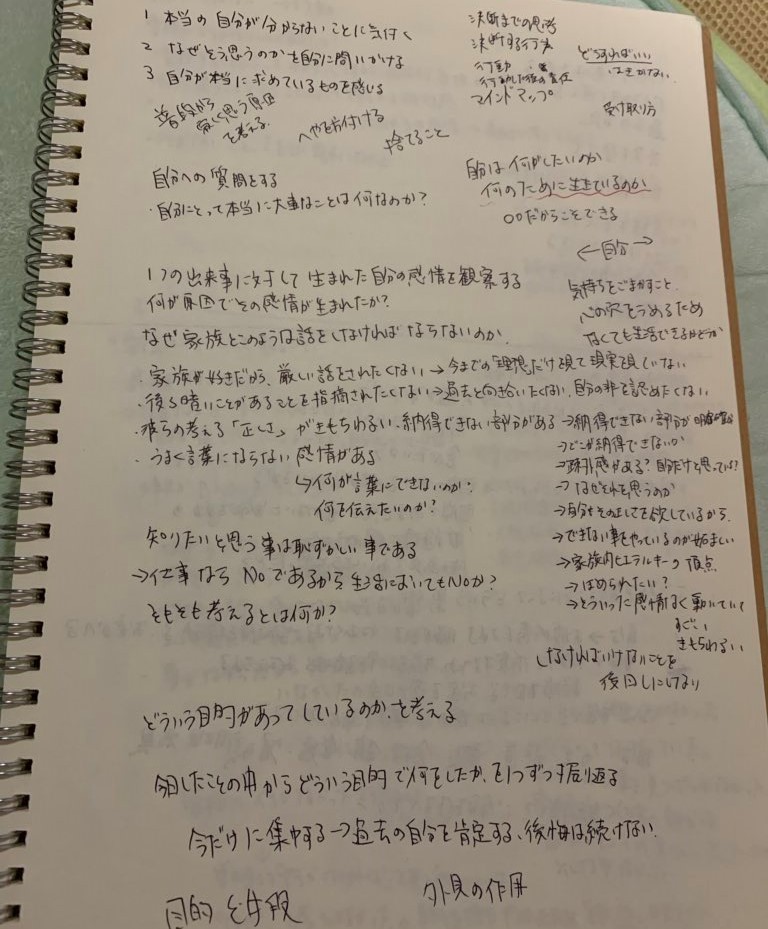 1 本当の自分が分からないことに気付く
2 なぜそう思うのかを自分に問いかける
3 自分が本当に求めているものを感じる
普段から
哀しく思う原因
を考える
へやを片付ける
捨てること
決断までの思考
決断する行為
行動
行動した後の責任
マインドマップ
どうすればいい
はきかない
受け取り方
自分への質問をする
・自分にとって本当に大事なことは何なのか?
自分は何がしたいのか
何のために生きているのか
〇〇だからことできる
←自分→
1つの出来事に対して生まれた自分の感情を観察する
何が原因でその感情が生まれたか?
気持ちをごまかすこと
心の穴をうめるため
なくても生活できるかどうか
なぜ家族とこのような話をしなければならないのか
・家族が好きだから、厳しい話をされたくない→今までの「理想」だけ視て現実を視ていない
・後ろ暗いことがあることを指摘されたくない→過去と向き合いたくない、自分の非を認めたくない
・彼らの考える「正しさ」がきもちわるい、納得できない部分がある→納得できない部分が
・うまく言葉にならない感情がある
→どこが納得できないか
→疎外感がある?自分だけと思っている?
→なぜそれを思うのか
→自分もその正しさを欲しているから
→できない事をやっているのが妬ましい
→家族内ヒエラルキーの頂点
→ほめられたい?
→どういった感情なく動いていて
すごい
きもちわるい
↳何が言葉にできないのか?
何を伝えたいのか?
知りたいと思う事は恥ずかしい事である
→仕事ならNoであるから生活においてもNoか?
そもそも考えるとは何か?
しなければいけないことを
後回しにしない
どういう目的があってしているのか、を考える
今日したことの中からどういう目的で何をしたか、を1つずつ振り返る
今だけに集中する→過去の自分を肯定する、後悔は続けない
目的と手段
外見の作用